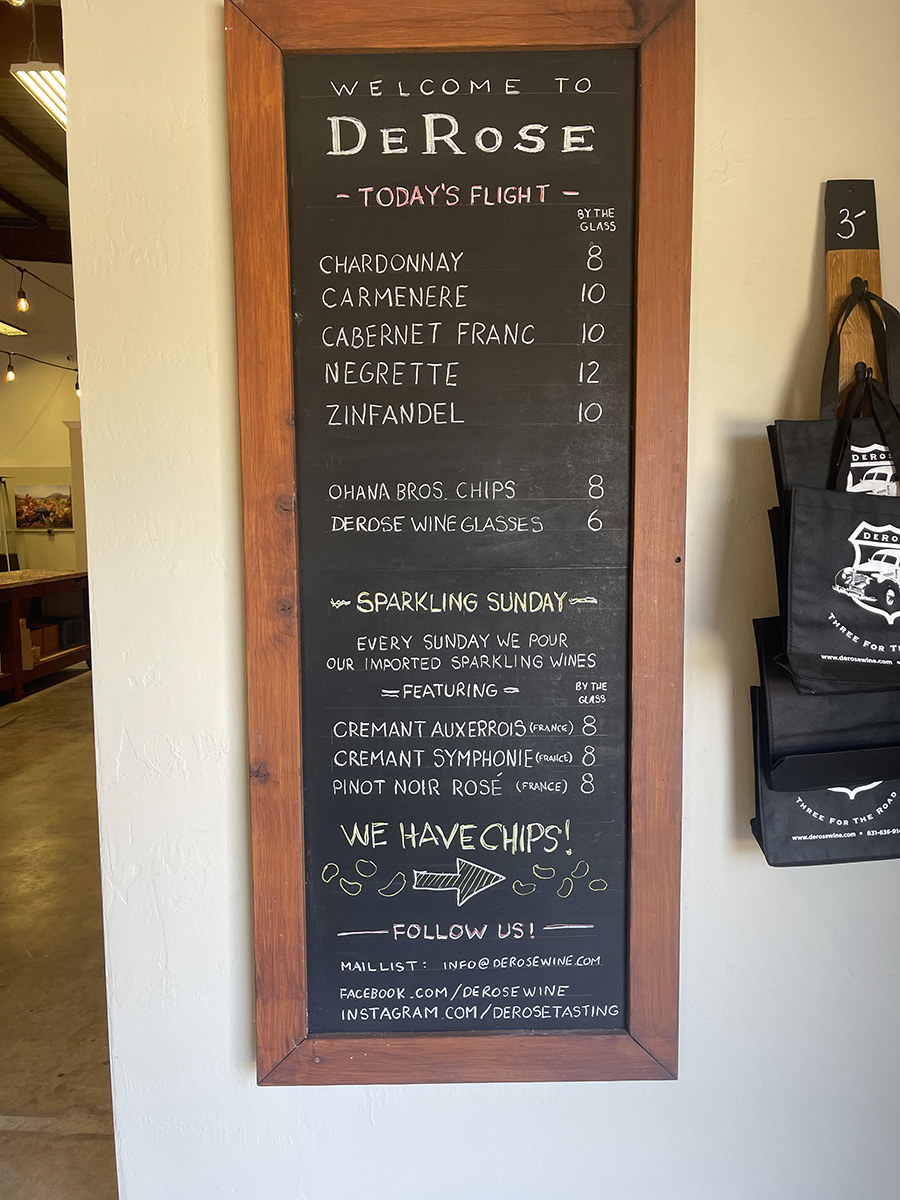 WELCOME TO
DEROSE
- TODAY'S FLIGHT -
BY THE
GLASS
CHARDONNAY 8
CARMENERE 10
CABERNET FRANC 10
NEGRETTE 12
ZINFANDEL 10
OHANA BROS. CHIPS 8
DEROSE WINE GLASSES 6
SPARKLING SUNDAY
EVERY SUNDAY WE POUR
OUR IMPORTED SPARKLING WINES
= FEATURING =
BY THE
GLASS
CREMANT AUXERROIS (FRANCE) 8
CREMANT SYMPHONIE (FRANCE) 8
PINOT NOIR ROSÉ (FRANCE) 8
WE HAVE CHIPS!
FOLLOW US!
MAIL LIST: INFO@DEROSEWINE.COM
FACEBOOK.COM/DEROSEWINE
INSTAGRAM.COM/DEROSETASTING
3-
DERO
DERO
THREE FOR
www.derosewine.com
THREE FOR THE ROAD
www.derosewine.com • 831-636-91